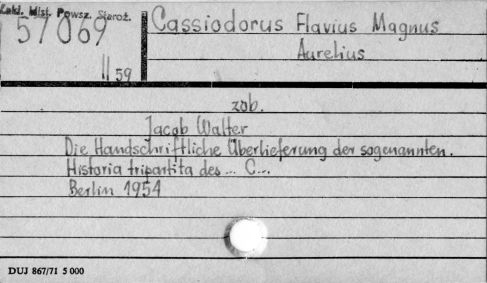 Zakł. Hist. Powsz. Staroż.
57069
II 59
Cassiodorus Flavius Magnus
Aurelius
zob.
Jacob Walter
Die Handschriftliche Überlieferung der sogenannten.
Historia tripartita des ... C...
Berlin 1954
DUJ 867/71 5 000